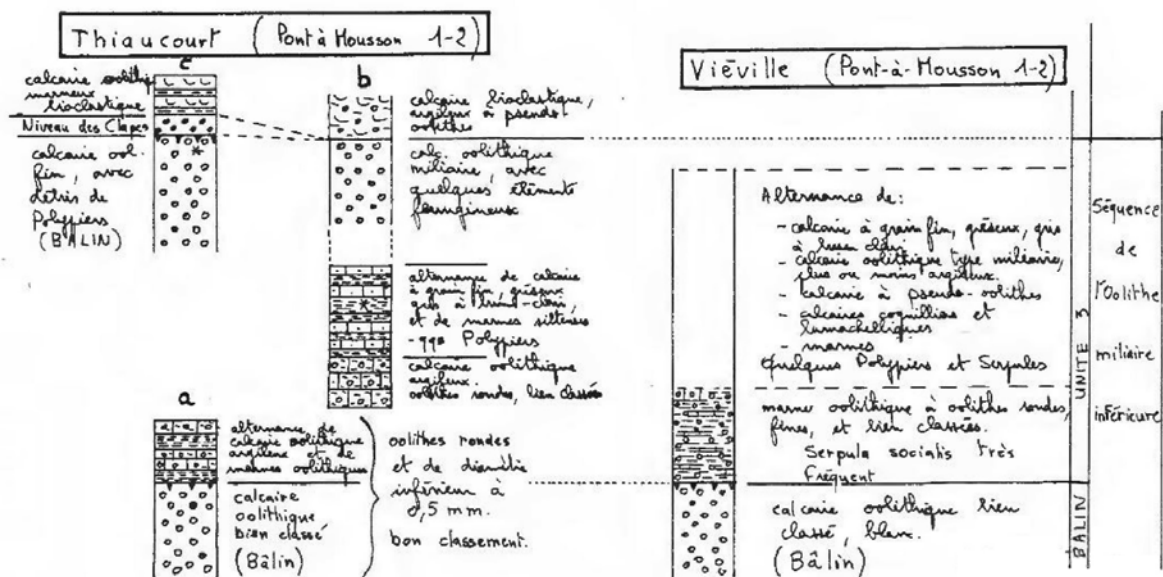 Thiaucourt (Pont à Mousson 1-2)
c
calcaire oolithiq
marneux
bioclastique
Niveau des Clapes
calcaire ool.
fin, avec
débris de
Polypiers
(BÂLIN)
b
calcaire bioclastique,
argileux à pseudo-
oolithes
calc. oolithique
miliaire, avec
quelques éléments
ferrugineux
alternance de calcaire
à grain fin, gréseux
gris à brun-clair,
et de marnes silteuses
-qqs Polypiers
calcaire oolithique
argileux.
oolithes rondes, bien classées
a
alternance de
calcaire oolithique
argileux et de
marnes oolithiques
calcaire
oolithique
bien classé
(Bâlin)
oolithes rondes
et de diamètre
inférieur à
0,5 mm.
bon classement.
Viéville (Pont-à-Mousson 1-2)
Alternance de:
- calcaire à grain fin, gréseux, gris
à brun clair
- calcaire oolithique type miliaire,
plus ou moins argileux.
- calcaire à pseudo-oolithes
- calcaires coquilliers et
lumachelliques
- marnes
Quelques Polypiers et Serpules
marne oolithique à oolithes rondes,
fines, et bien classées.
Serpula socialis très
fréquent
calcaire oolithique bien
classé, blanc.
(Bâlin)
UNITE 3
BALIN
Séquence
de
l'Oolithe
miliaire
inférieure